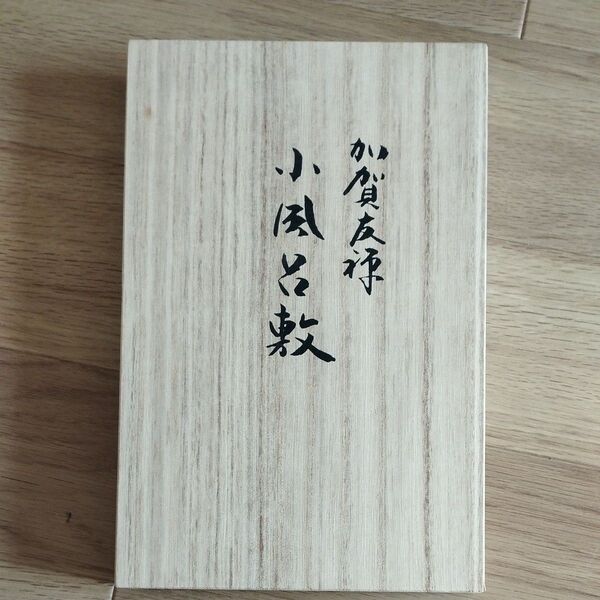 加賀友禅
小風呂敷